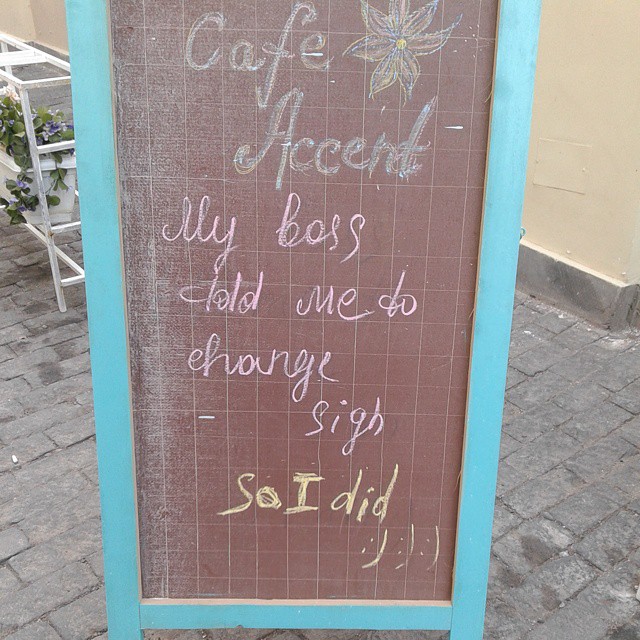 Cafe
Accent
My boss
told me to
change
sign
So I did
:) :) :)